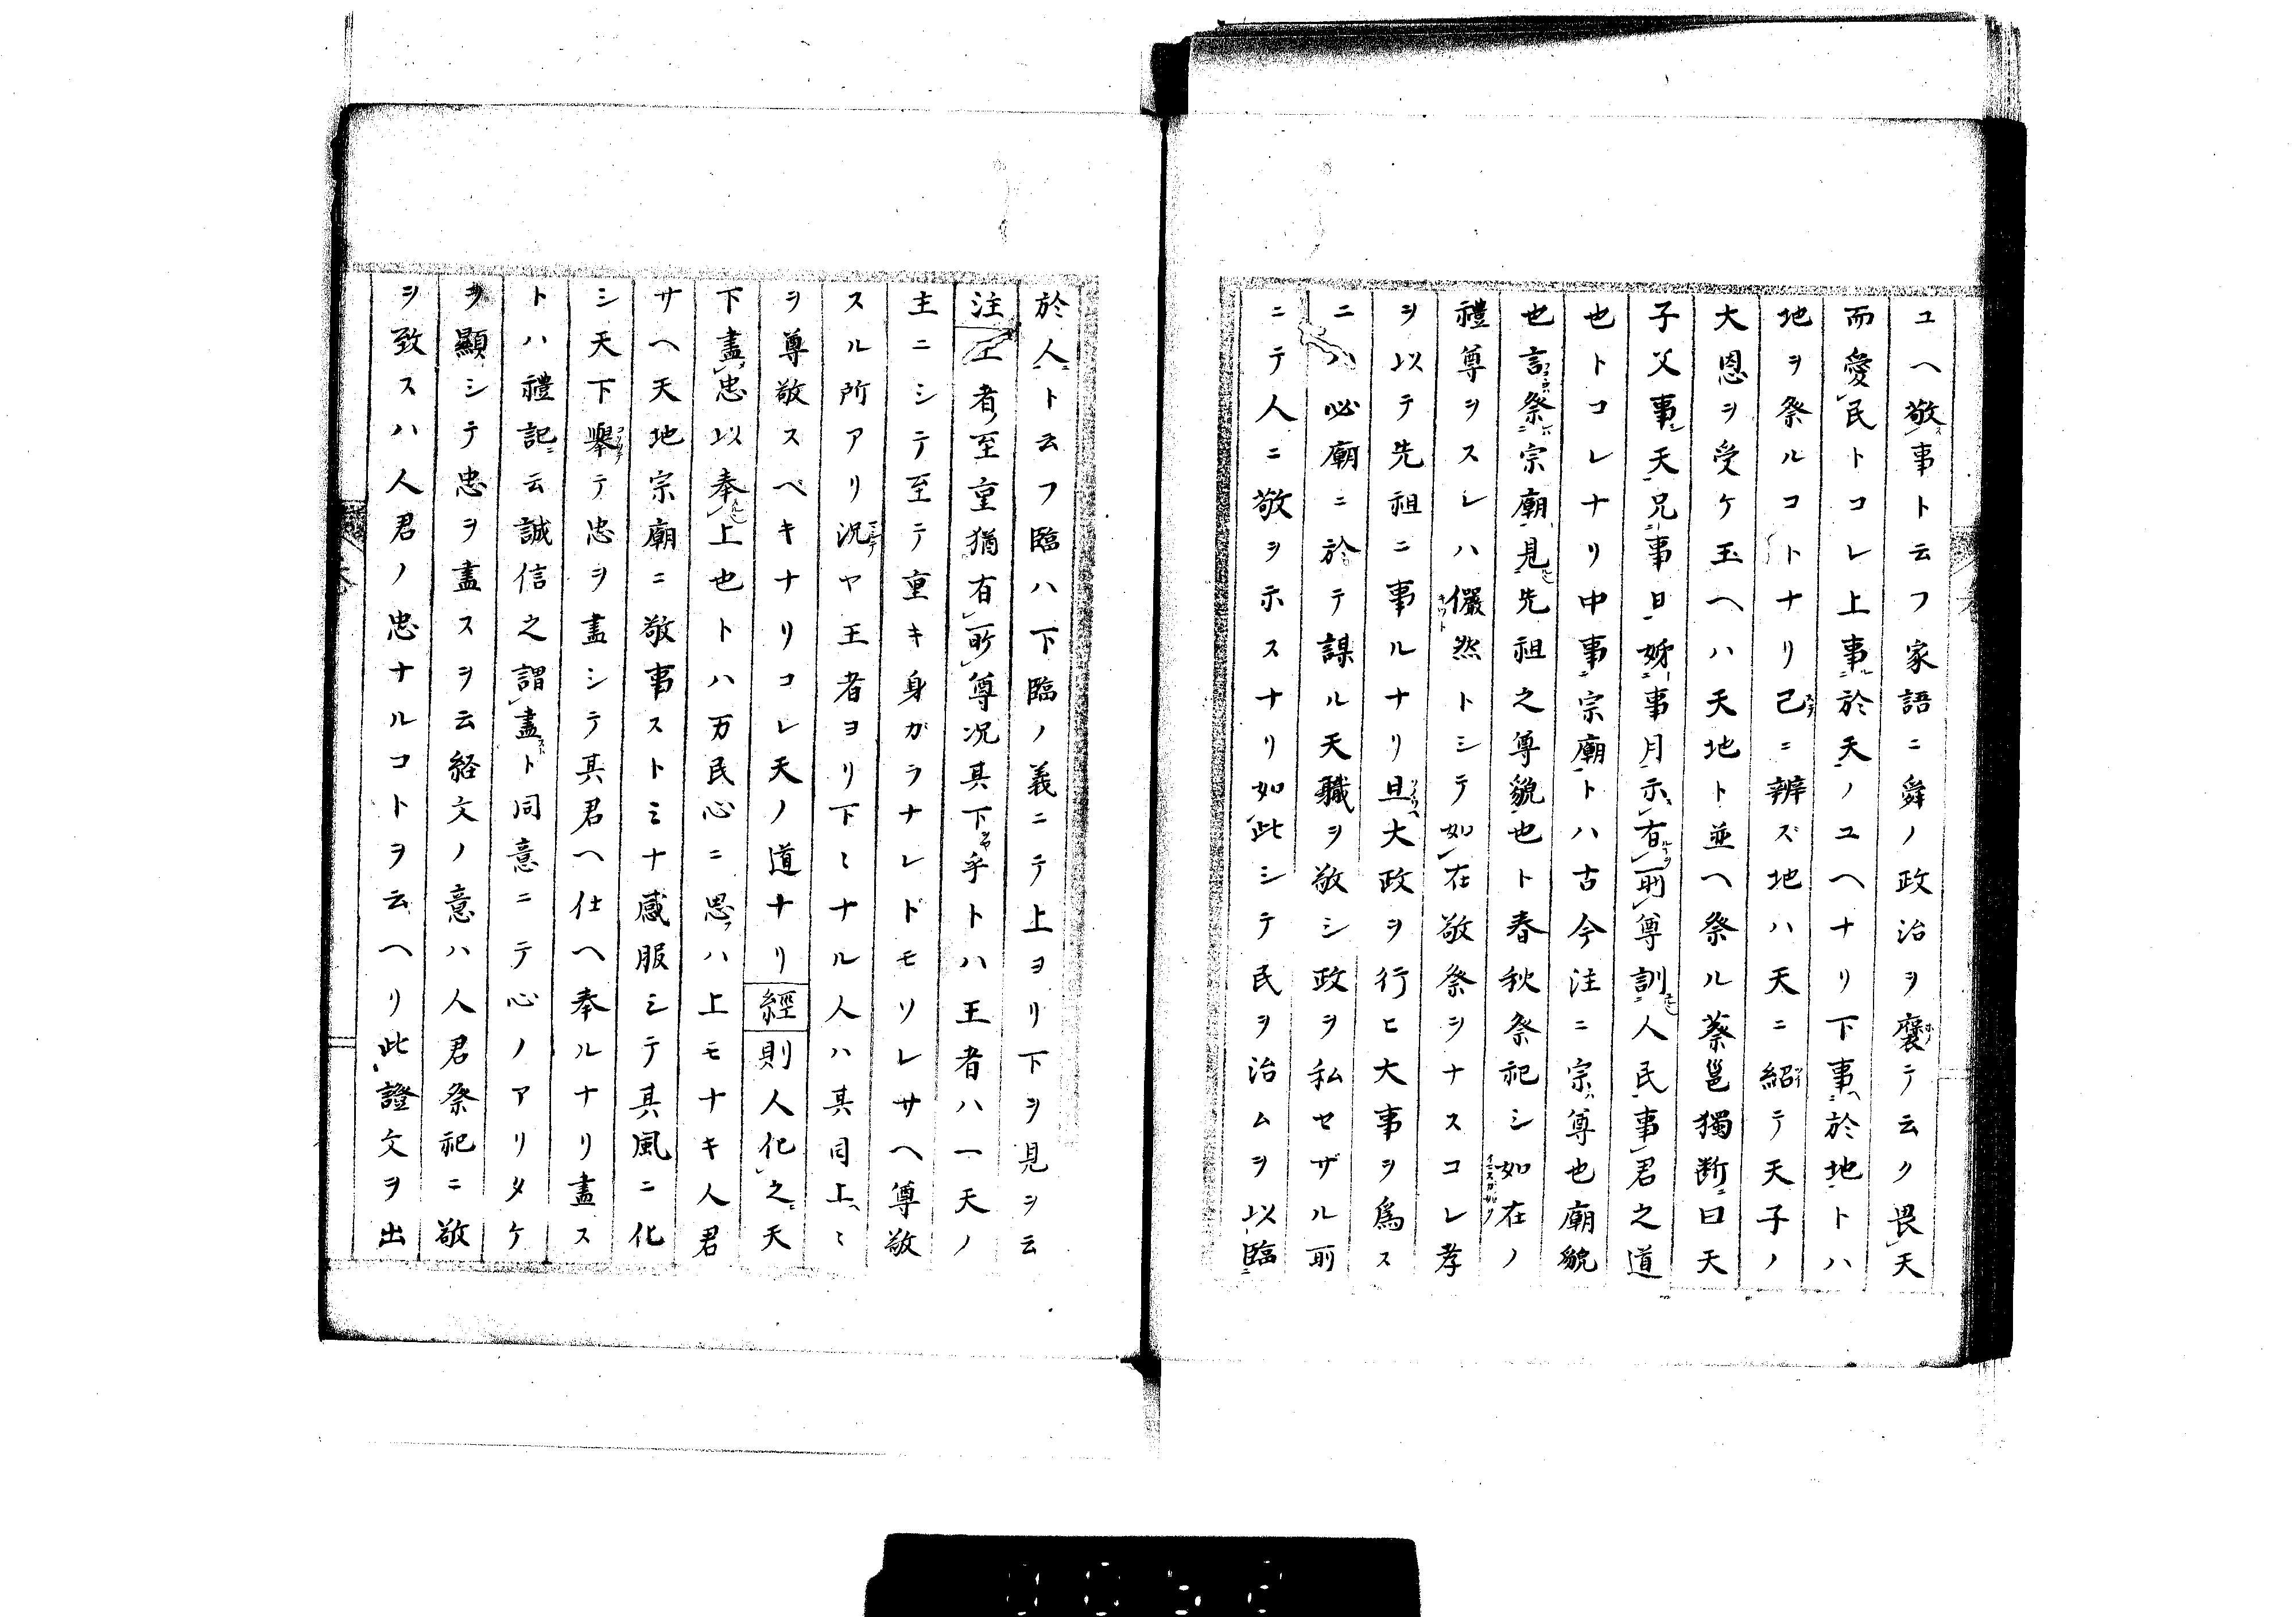 ユヘ敬事ト云フ家語ニ舜ノ政治ヲ襃テ云ク畏天
而愛民トコレ上事於天ノユヘナリ下事於地トハ
地ヲ祭ルコトナリ己ニ辨ズ地ハ天ニ紹テ天子ノ
大恩ヲ受ケ玉ヘハ天地ト並ヘ祭ル蔡邕獨断ニ曰天
子父事天兄事日姊事月示有所尊訓人民事君之道
也トコレナリ中事宗廟トハ古今注ニ宗尊也廟貌
也言祭宗廟見先祖之尊貌也ト春秋祭祀シ如在ノ
禮尊ヲスレハ儼然トシテ如在敬祭ヲナスコレ孝
ヲ以テ先祖ニ事ルナリ且大政ヲ行ヒ大事ヲ爲ス
ニハ必廟ニ於テ謀ル天職ヲ敬シ政ヲ私セザル所
ニテ人ニ敬ヲ示スナリ如此シテ民ヲ治ムヲ以臨
於人ト云フ臨ハ下臨ノ義ニテ上ヨリ下ヲ見ヲ云
注王者至重猶有所尊况其下乎トハ王者ハ一天ノ
主ニシテ至テ重キ身ガラナレドモソレサヘ尊敬
スル所アリ況ヤ王者ヨリ下〻ナル人ハ其目上〻
ヲ尊敬スベキナリコレ天ノ道ナリ經則人化之天
下盡忠以奉上也トハ万民心ニ思ハ上モナキ人君
サヘ天地宗廟ニ敬事ストミナ感服シテ其風ニ化
シ天下舉テ忠ヲ盡シテ其君ヘ仕ヘ奉ルナリ盡ス
トハ禮記ニ云誠信之謂盡ト同意ニテ心ノアリタケ
ヲ顯シテ忠ヲ盡スヲ云経文ノ意ハ人君祭祀ニ敬
ヲ致スハ人君ノ忠ナルコトヲ云ヘリ此證文ヲ出